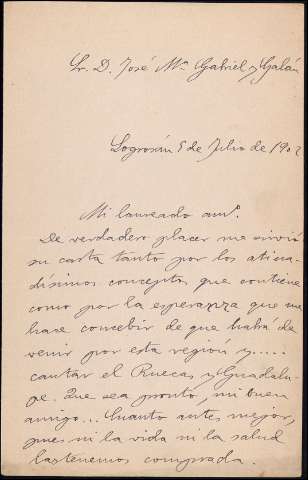 Sr. D. José Mª Gabriel y Galán
Logrosán 5 de Julio de 1902
Mi laureado amº.
De verdadero placer me sirvió
su carta tanto por los atina-
dísimos conceptos que contiene
como por la esperanza que me
hace concebir de que habrá de
venir por esta región y.....
cantar el Ruecas y Guadalu-
pe. Que sea pronto, mi buen
amigo... Cuanto antes mejor,
pues ni la vida ni la salud
las tenemos comprada.